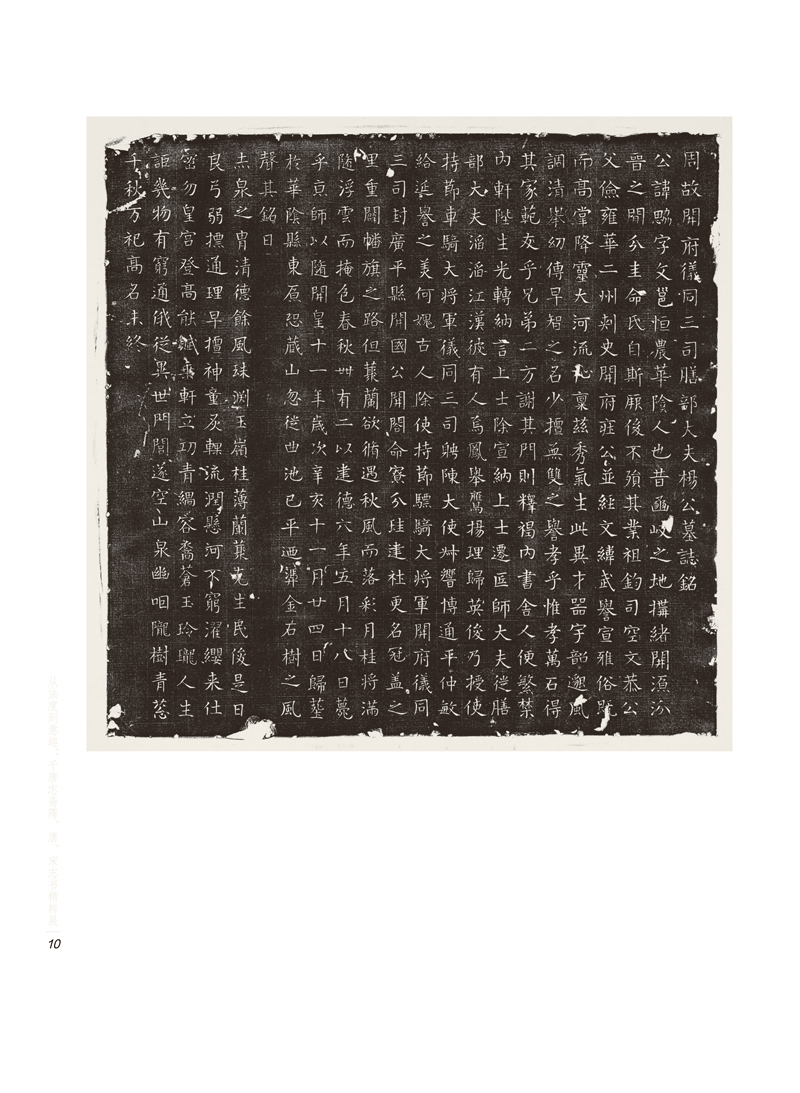 周故開府儀同三司膳部大夫楊公墓誌銘
公諱黝字文邕恒農華陰人也昔豳岐之地構緒開源汾
晉之開分圭命氏自斯厥後不殞其業祖鈞司空文恭公
父儉雍華二州刺史開府莊公並經文緯武譽宣雅俗既
而高堂降靈大河流 稟茲秀氣生此異才器宇韶邈風
調清舉幼傳早智之名少擅無雙之譽孝乎惟孝萬石得
其家範友乎兄弟二方謝其門則釋褐內書舍人便繁禁
內軒陛生光轉納言上士除宣納上士遷匠師大夫從膳
部大夫滔滔江漢彼有人焉鳳舉鷹揚理歸英俊乃授使
持節車騎大將軍儀同三司娉陳大使艸響博通平仲敏
給延譽之美何媿古人除使持節驃騎大將軍開府儀同
三司封廣平縣開國公開閤命寮分珪建社更名冠蓋之
里重闢幡旗之路但蓁蘭欲脩遇秋風而落彩月桂將滿
隨浮雲而掩色春秋卅有二以建德六年五月十八日薨
乎京師以隨開皇十一年歲次辛亥十一月廿四日歸葬
於華陰縣東原恐藏山忽徙曲池已平迺 金石樹之風
聲其銘曰
赤泉之胄清德餘風珠渊玉嶺桂薄蘭藂克生民俊是曰
良弓弱摽通理早擅神童炙輠流潤懸河不窮濯纓来仕
密勿皇宮登高能賦乘軒立功青緺容裔蒼玉玲瓏人生
詎幾物有窮通俄從異世門閭遂空山泉幽咽隴樹青蔥
千秋万祀髙名未終
10